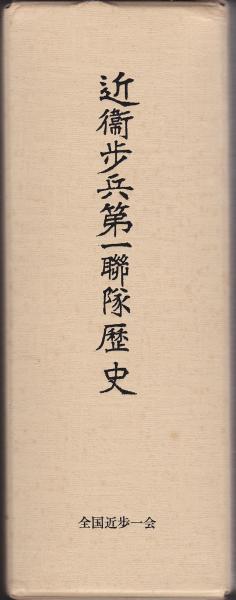 近衞步兵第一聯隊歷史
全国近歩一会